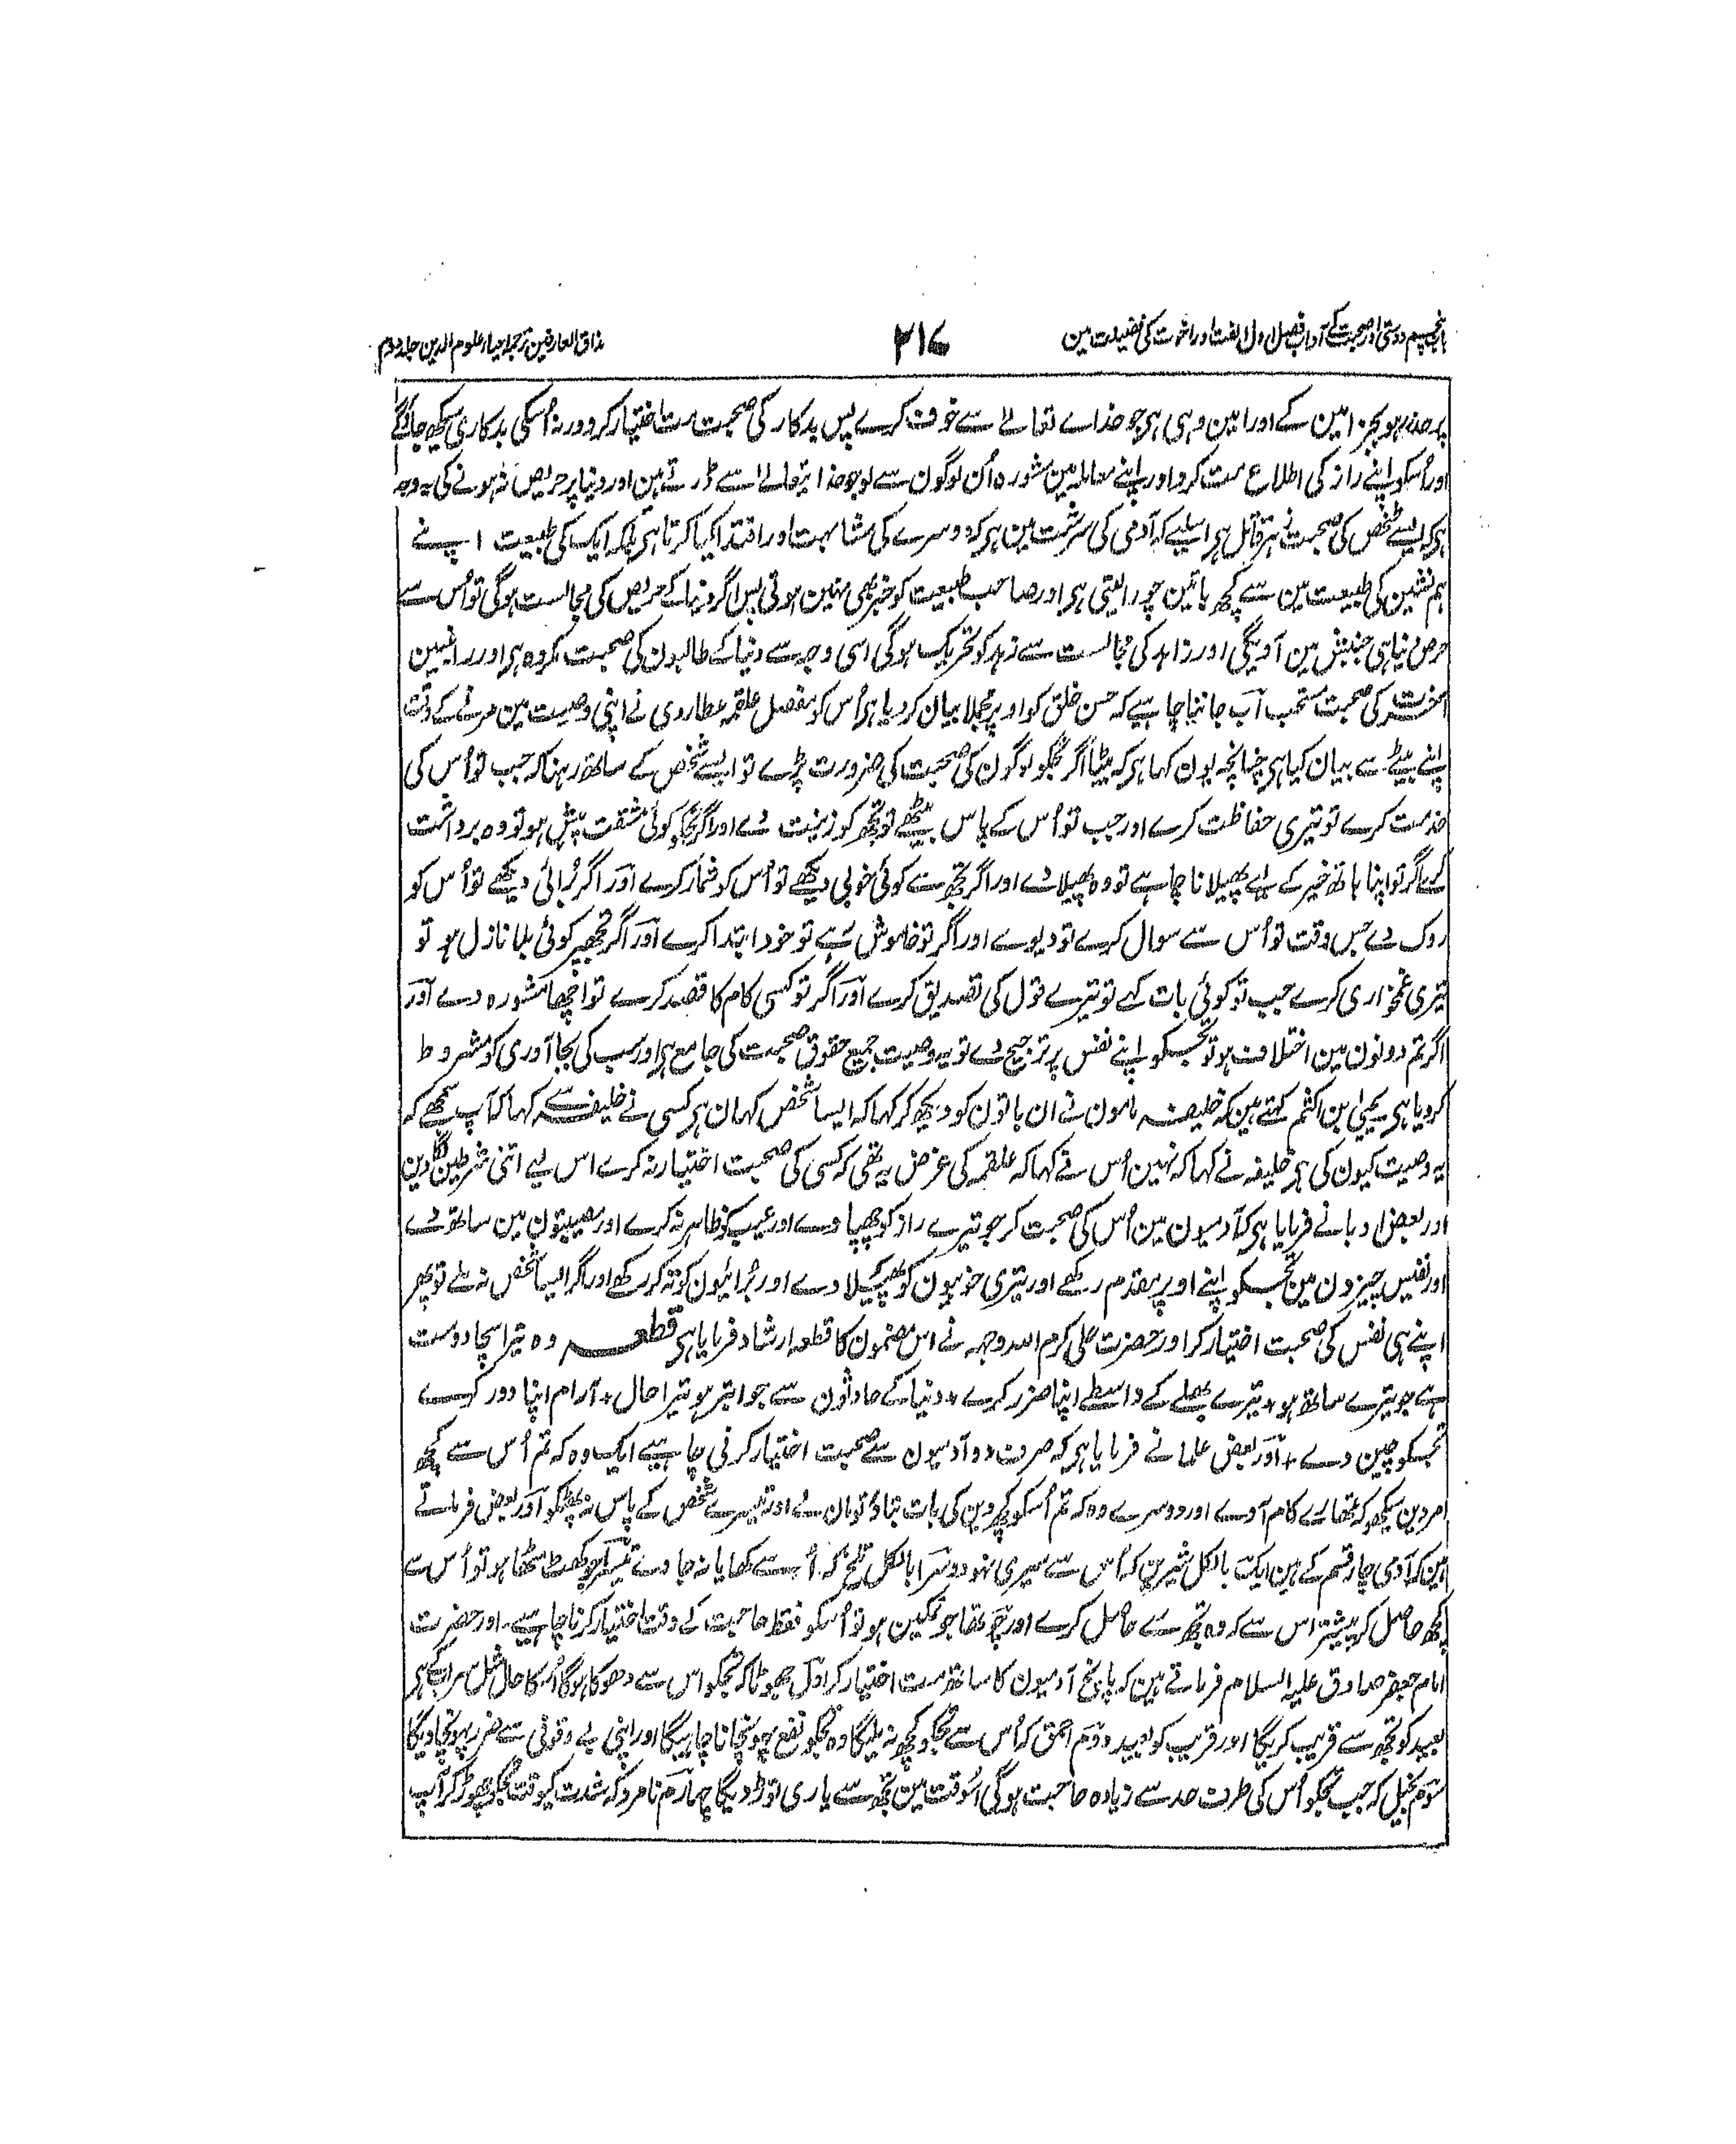 باب پنجم دوستی اور صحبت کے آداب فصل اول الفت اور اخوت کی فضیلت مین
۲۱۷
مذاق العارفین ترجمہ احیاء علوم الدین جلد دوم
پر حذر ہو بجز امین کے اور امین وہی ہی جو خداے تعالے سے خوف کرے پس بدکار کی صحبت مت اختیار کرو ورنہ اُسکی بدکاری سیکھ جاؤگے
اور اُسکو اپنے راز کی اطلاع مت کرو اور اپنے معاملہ مین مشورہ اُن لوگون سے لو جو خدا یتعالے سے ڈرتے ہین اور دنیا پر حریص نہونے کی یہ وجہ
ہی کہ ایسے شخص کی صحبت زہر قاتل ہی اسلیے کہ آدمی کی سرشت مین ہی کہ دوسرے کی مشابہت اور اقتدا کیا کرتا ہی بلکہ ایک کی طبیعت اپنے
ہم نشین کی طبیعت مین سے کچھ باتین چورا لیتی ہی اور صاحب طبیعت کو خبر بھی نہین ہوتی پس اگر دنیا کے حریص کی مجالست ہوگی تو اُس سے
حرص دنیا ہی جنبش مین آویگی اور زاہد کی مجالست سے زہد کو تحریک ہوگی اسی وجہ سے دنیا کے طالبون کی صحبت مکروہ ہی اور راغبین
آخرت کی صحبت مستحب آب جاننا چاہیے کہ حسن خلق کو اوپر مجملا بیان کر دیا ہی اُس کو مفصل علقمہ عطاردی نے اپنی وصیت مین مرنے کے وقت
اپنے بیٹے سے بیان کیا ہی چنانچہ یون کہا ہی کہ بیٹا اگر تجکو لوگون کی صحبت کی ضرورت پڑے تو ایسے شخص کے ساتھ رہنا کہ جب تو اُس کی
خدمت کرے تو تیری حفاظت کرے اور جب تو اُس کے پاس بیٹھے تو تجھ کو زینت دے اور اگر تجکو کوئی مشقت پیش ہو تو وہ برداشت
کرے اگر تو اپنا ہاتھ خیر کے لیے پھیلانا چاہے تو وہ پھیلاے اور اگر تجھ سے کوئی خوبی دیکھے تو اُس کو شمار کرے اور اگر بُرائی دیکھے تو اُس کو
روک دے جس وقت تو اُس سے سوال کرے تو دیوے اور اگر تو خاموش رہے تو خود ابتدا کرے اور اگر تجھپر کوئی بلا نازل ہو تو
تیری غمخواری کرے جب تو کوئی بات کہے تو تیرے قول کی تصدیق کرے اور اگر تو کسی کام کا قصد کرے تو اچھا مشورہ دے اور
اگر تم دونون مین اختلاف ہو تو تجکو اپنے نفس پر ترجیح دے تو یہ وصیت جمیع حقوق صحبت کی جامع ہی اور سب کی بجا آوری کو مشروط
کر دیا ہی یحییٰ بن اکثم کہتے ہین کہ خلیفہ مامون نے ان باتون کو دیکھ کر کہا کہ ایسا شخص کہان ہی کسی نے خلیفہ سے کہا کہ آپ سمجھے کہ
یہ وصیت کیون کی ہی خلیفہ نے کہا کہ نہین اُس نے کہا کہ علقمہ کی غرض یہ تھی کہ کسی کی صحبت اختیار نہ کرے اس لیے اتنی شرطین لگا دین
اور بعض ادبا نے فرمایا ہی کہ آدمیون مین اُس کی صحبت کر جو تیرے راز کو چھپاوے اور عیب کو ظاہر نہ کرے اور مصیبتون مین ساتھ دے
اور نفیس چیزون مین تجکو اپنے اوپر مقدم رکھے اور تیری خوبیون کو پھیلا دے اور بُرائیون کو تہ کر رکھے اور اگر ایسا شخص نہ ملے تو پھر
اپنے ہی نفس کی صحبت اختیار کر اور حضرت علی کرم اللہ وجہہ نے اس مضمون کا قطعہ ارشاد فرمایا ہی قطعہ وہ تیرا سچا دوست
ہے جو تیرے ساتھ ہو + تیرے بھلے کے واسطے اپنا ضرر کرے + دنیا کے حادثون سے جو ابتر ہو تیرا حال + آرام اپنا دور کرے
تجکو چین دے + اور بعض علما نے فرمایا ہی کہ صرف دو آدمیون سے صحبت اختیار کرنی چاہیے ایک وہ کہ تم اُس سے کچھ
امر دین سیکھو کہ تمھارے کام آوے اور دوسرے وہ کہ تم اُسکو کچھ دین کی بات بتاؤ تو مان لے اور تیسرے شخص کے پاس نہ پھٹکو اور بعض فرماتے
ہین کہ آدمی چار قسم کے ہین ایک بالکل شیرین کہ اُس سے سیری نہو دوسرا بالکل تلخ کہ اُسے کھایا نہ جاوے تیسرا جو کھٹ مٹھا ہو تو اُس سے
کچھ حاصل کر پیشتر اس سے کہ وہ تجھ سے حاصل کرے اور چوتھا جو نمکین ہو تو اُسکو فقط حاجت کے وقت اختیار کرنا چاہیے۔ اور حضرت
امام جعفر صادق علیہ السلام فرماتے ہین کہ پانچ آدمیون کا ساتھ مت اختیار کر اوّل جھوٹا کہ تجکو اس سے دھوکا ہوگا اُسکا حال مثل سراب کے ہی
بعید کو تجھ سے قریب کریگا اور قریب کو بعید دوم احمق کہ اُس سے تجکو کچھ نہ ملیگا وہ تجکو نفع پہونچانا چاہیگا اور اپنی بے وقوفی سے ضرر پہونچاویگا
سوم بخیل کہ جب تجکو اُس کی طرف حد سے زیادہ حاجت ہوگی اُسوقت مین تجھ سے یاری توڑ دیگا چہارم نامرد کہ شدت کیوقت تجکو چھوڑ کر آپ